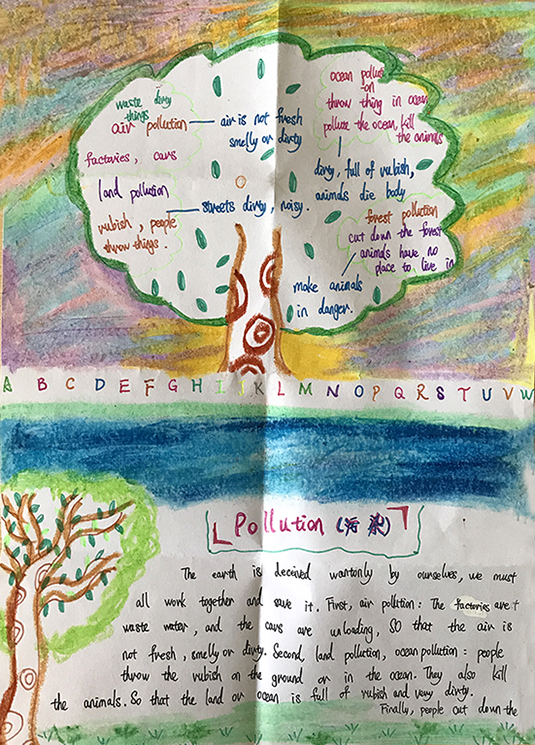 waste dirty
things
air pollution
air is not fresh
smelly or dirty
factories, cars
ocean pollut
-on
throw thing in ocean
pollute the ocean, kill
the animals
dirty, full of rubish,
animals die body
land pollution
rubish, people
throw things.
streets dirty, noisy.
forest pollution
cut down the forest
animals have no
place to live in
make animals
in danger.
A B C D E F G H I J K L M N O P Q R S T U V W
Pollution (污染)
The earth is deceived wantonly by ourselves, we must
all work together and save it. First, air pollution: The factories aret
waste water, and the cars are unloading, SO that the air is
not fresh, smelly or dirty. Second land pollution, ocean pollution: people
throw the rubish on the ground or in the ocean. They also kill
the animals. So that the land or ocean is full of rubish and very dirty.
Finally, people cut down the